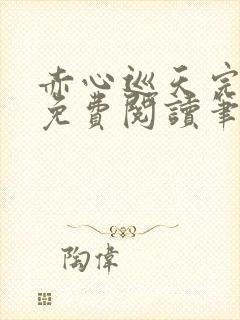 赤心巡天完
免費閱讀筆
陶偉